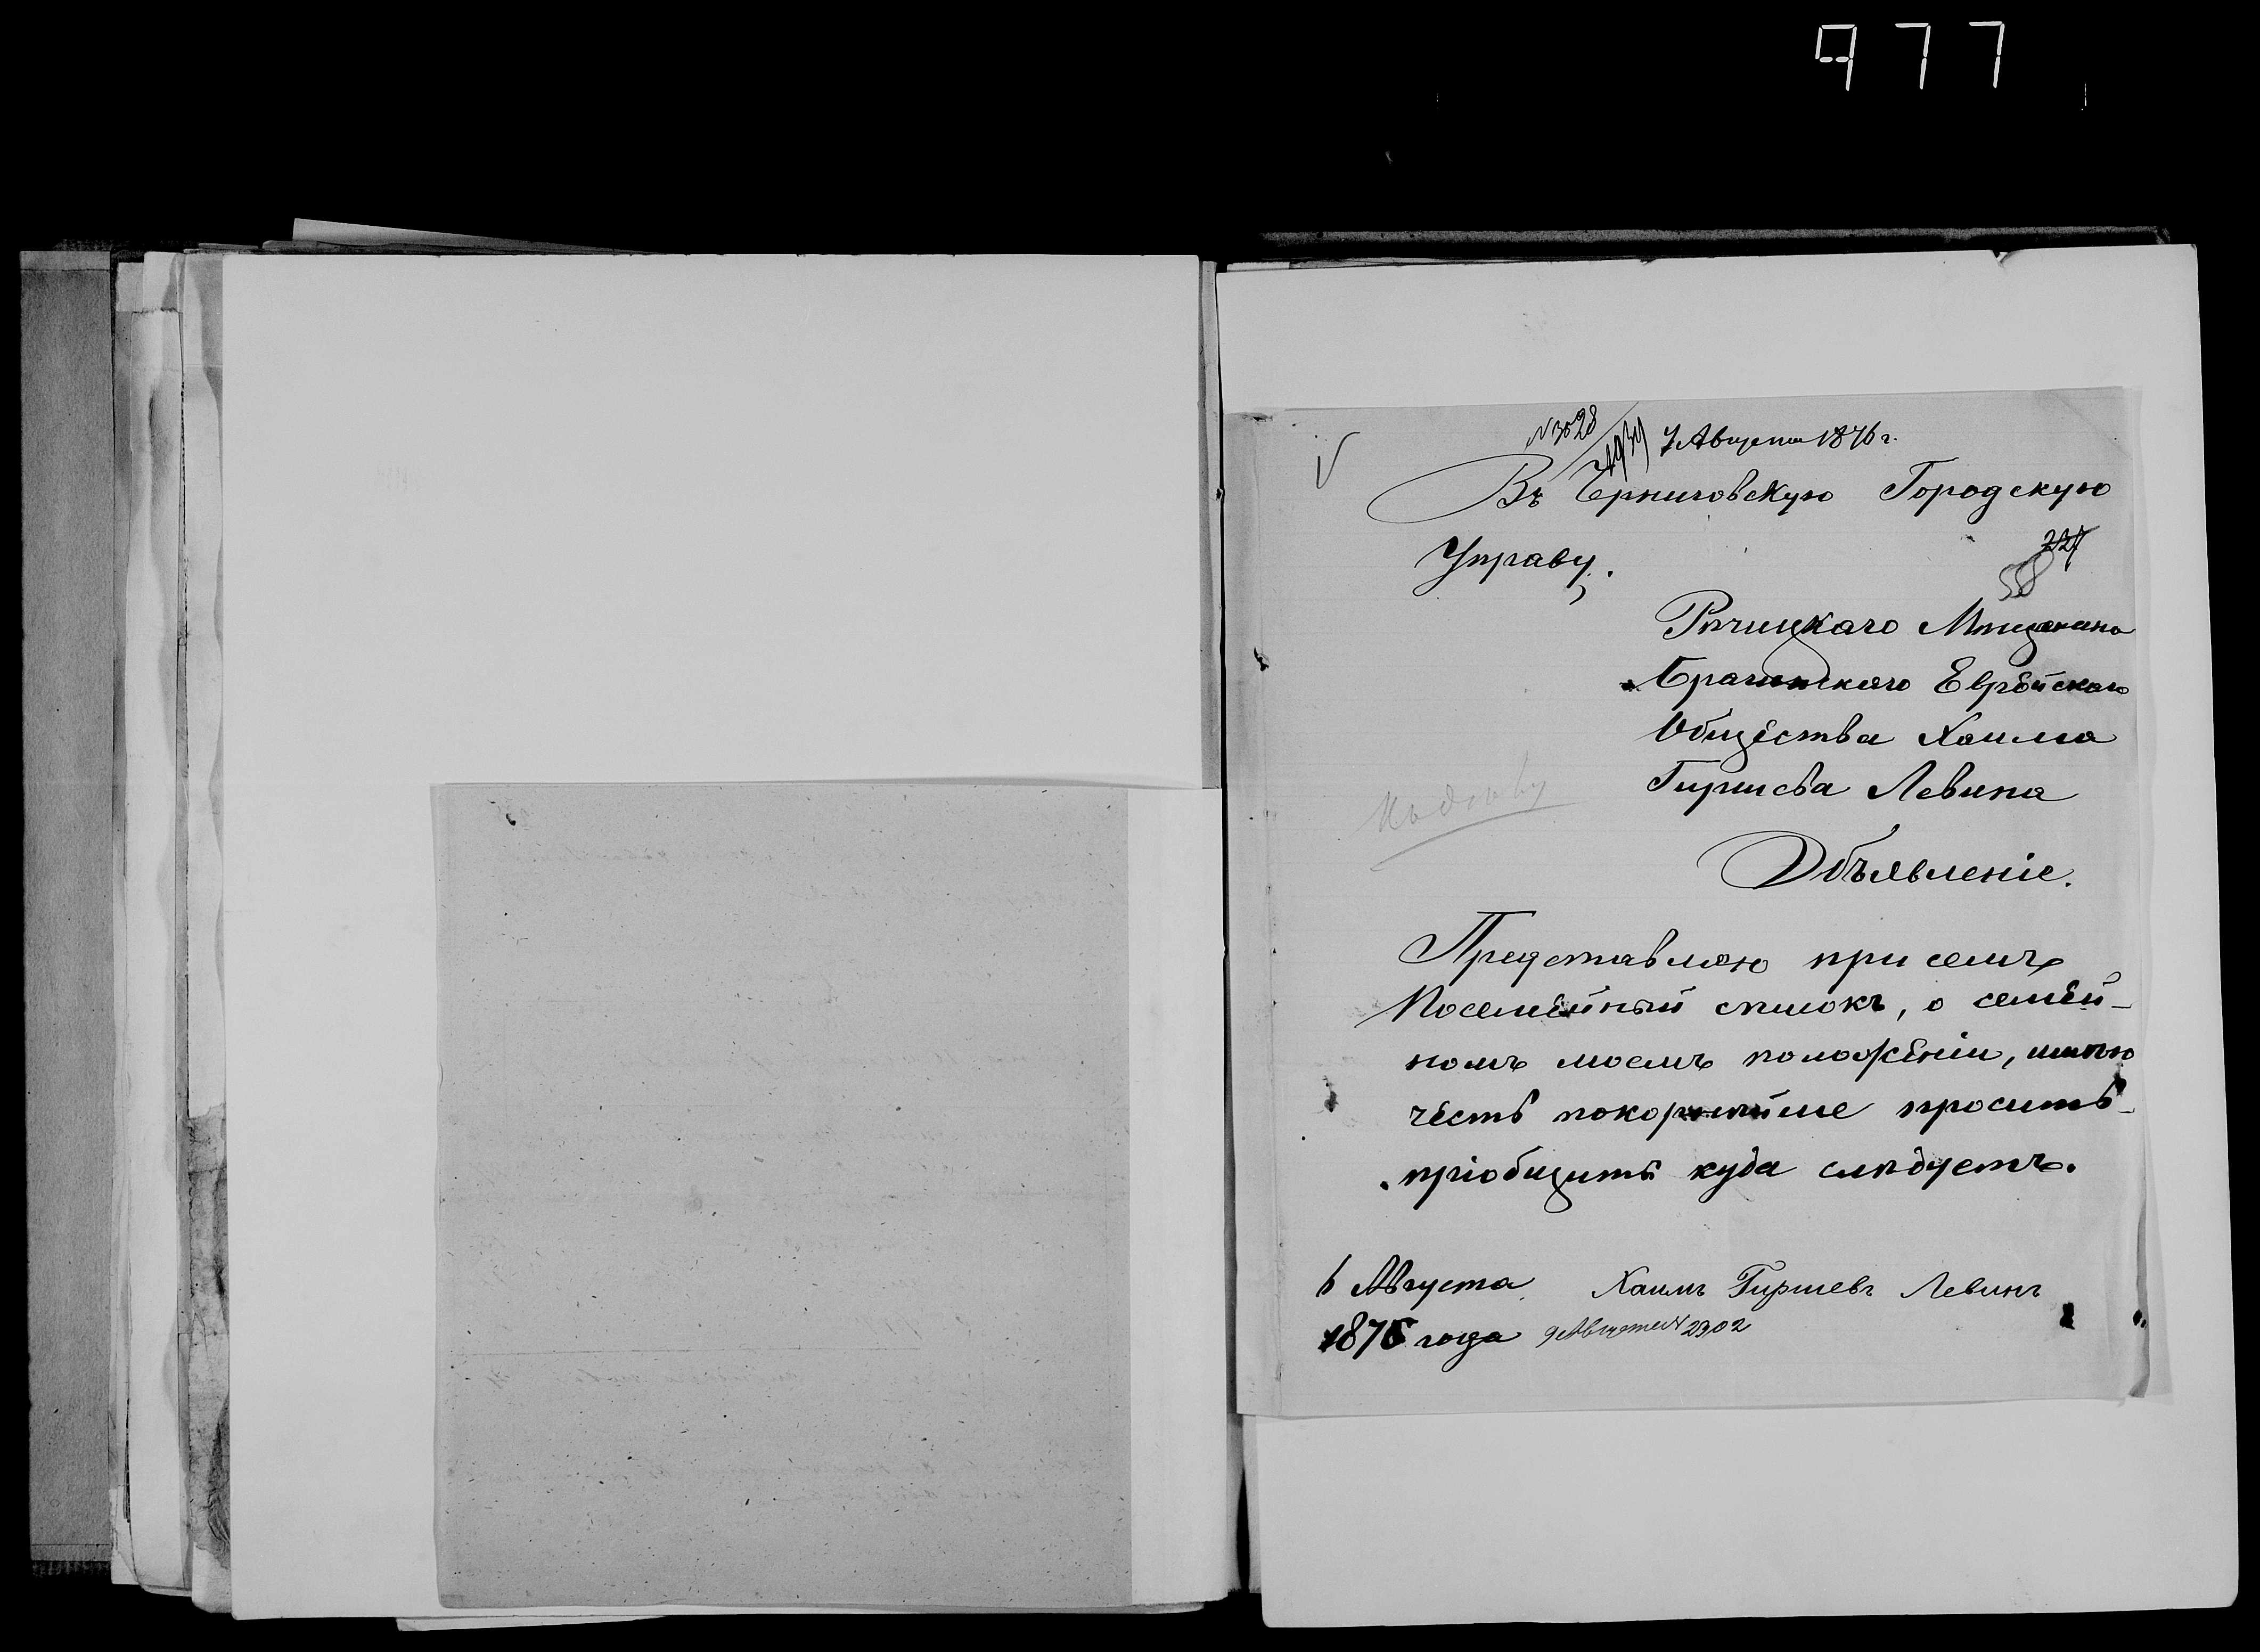 977
№ 3028
7 Августа 1876 г.
Въ Черниговскую Городскую
Управу.
227
558
Рѣчицкаго Мѣщанина
Брагинскаго Еврейскаго
Общества Хаима
Гиршева Левина
Къ дѣлу
Объявленіе.
Представляю при семъ
Посемейный списокъ, о семей-
номъ моемъ положеніи, имѣю
честь покорнѣйше просить
пріобщить куда слѣдуетъ.
6 Августа Хаимъ Гиршевъ Левинъ
1876 года 9 Августа № 2902